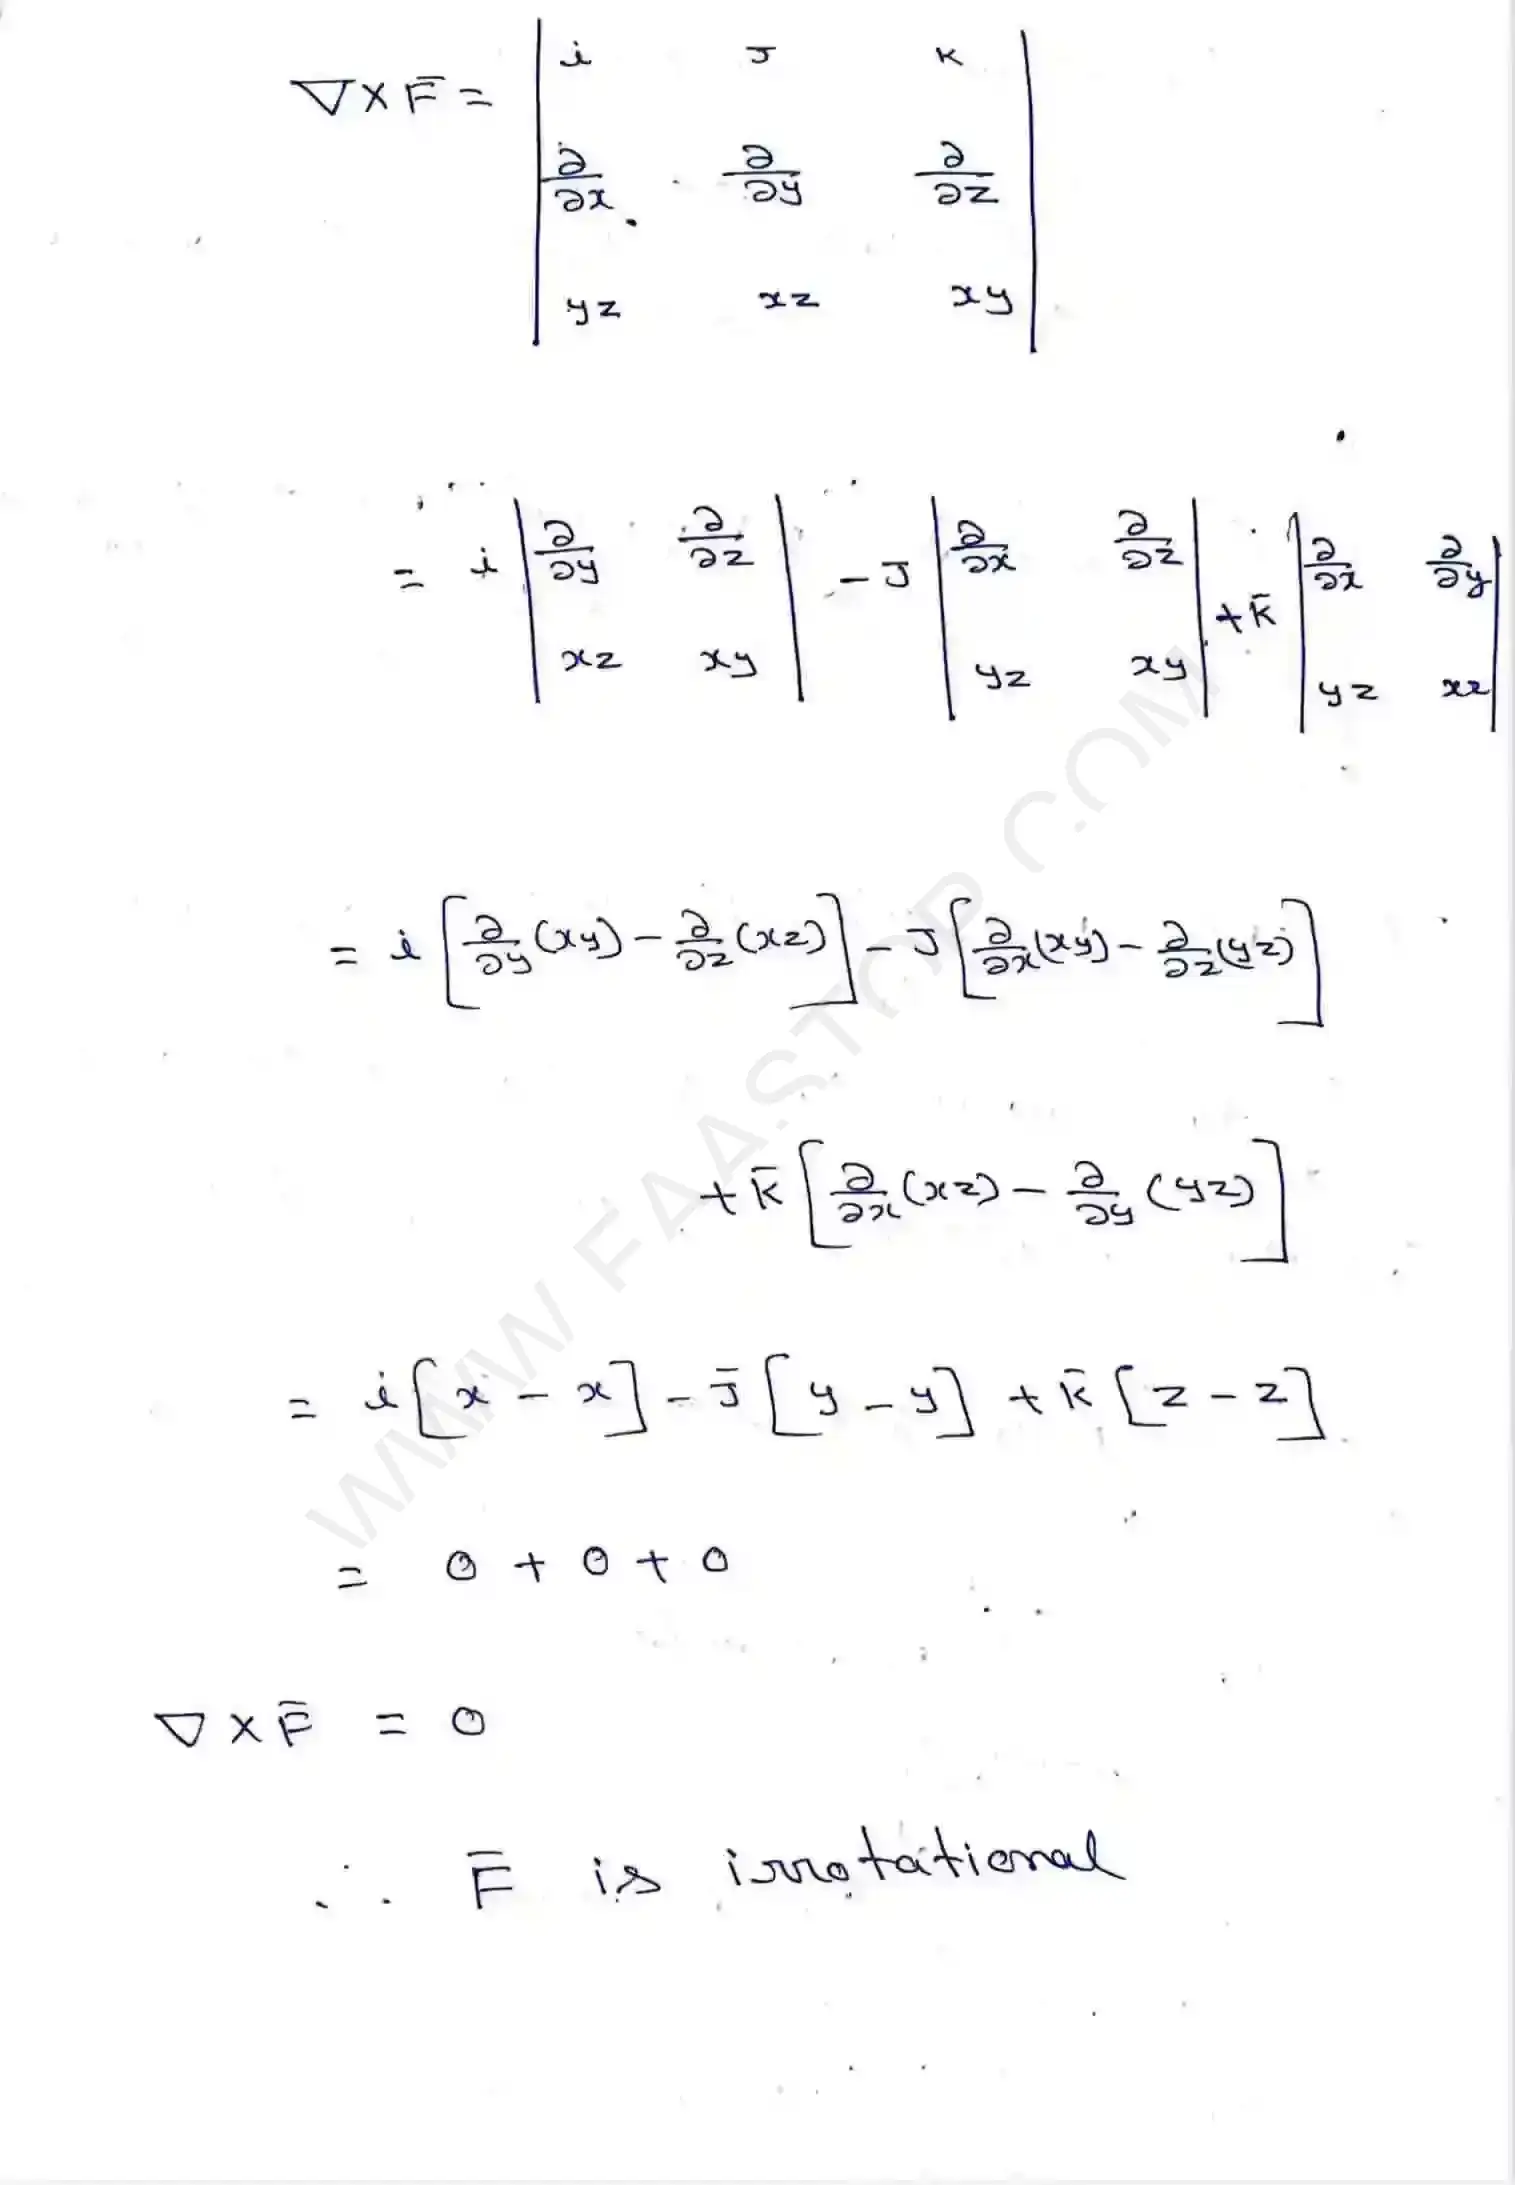 ∇×F̄ = | i J k |
| ∂/∂x ∂/∂y ∂/∂z |
| yz xz xy |
= i | ∂/∂y ∂/∂z | - J | ∂/∂x ∂/∂z | + k̄ | ∂/∂x ∂/∂y |
| xz xy | | yz xy | | yz xz |
= i [∂/∂y (xy) - ∂/∂z (xz)] - J [∂/∂x (xy) - ∂/∂z (yz)]
+ k̄ [∂/∂x (xz) - ∂/∂y (yz)]
= i [x - x] - J̄ [y - y] + k̄ [z - z]
= 0 + 0 + 0
∇×F̄ = 0
∴ F̄ is irrotational
WWW.FAASTOP.COM